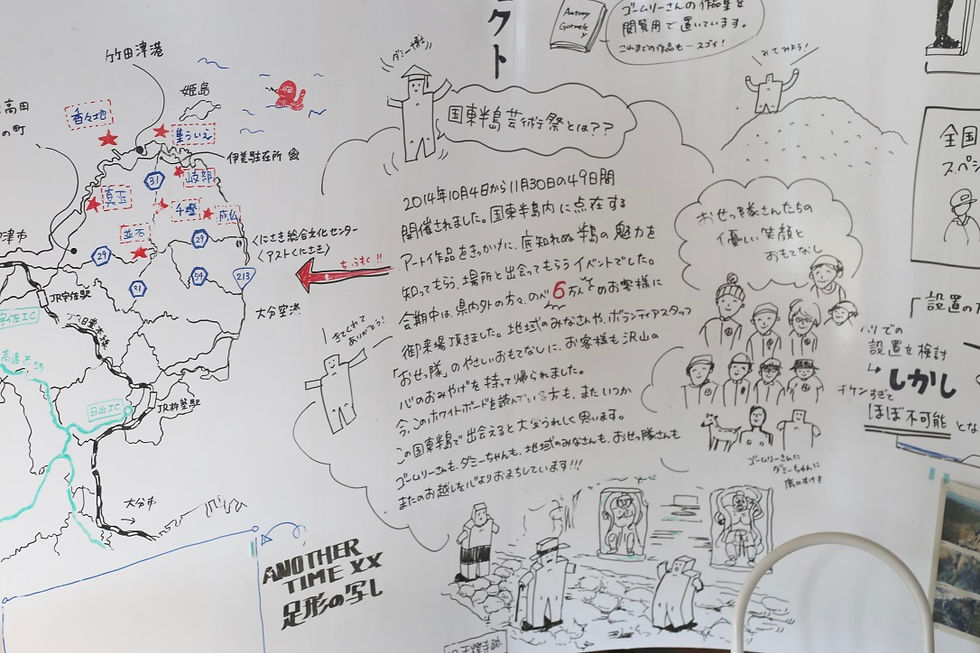 クト
Antony Gormley
ゴームリーさんの作品集を
閲覧用で置いています。
これまでの作品も一スゴイ!
みてみよう!
竹田津港
姫島
高田
の町
香々地
隼ういえ
伊美駐在所
岐部
真玉
千燈
成仏
並石
31
29
29
31
54
213
津市
くにさき総合文化センター
〈アストくにさき〉
大分空港
JR宇佐駅
宇佐IC
日出IC
JR杵築駅
大分市
ちゅうもく!!
ダミー博士
国東半島芸術祭とは??
2014年10月4日から11月30日の49日間
開催されました。国東半島内に点在する
アート作品をきっかけに、底知れぬ半島の魅力を
知ってもらう、場所と出会ってもらうイベントでした。
会期中は、県内外の方々、のべ6万人ものお客様に
御来場頂きました。地域のみなさんや、ボランティアスタッフ
「おせっ隊」のやさしいおもてなしに、お客様も沢山の
心のおみやげを持って帰られました。
今、このホワイトボードを読んでいる方も、またいつか
この国東半島で出会えると大変うれしく思います。
ゴームリーさんも、ダミーちゃんも、地域のみなさんも、おせっ隊さんも
またのお越しを心よりおまちしています!!!
きてくれて
ありがとう!
おせっ隊さんたちの
優しい笑顔と
おもてなし
ゴームリーさんに
ダミーちゃんに
ANOTHER
TIME XX
足形の写し
全国
スペシ
設置の
ハリでの
設置を検討
しかし
チケンすぎて
ほぼ不可能とな